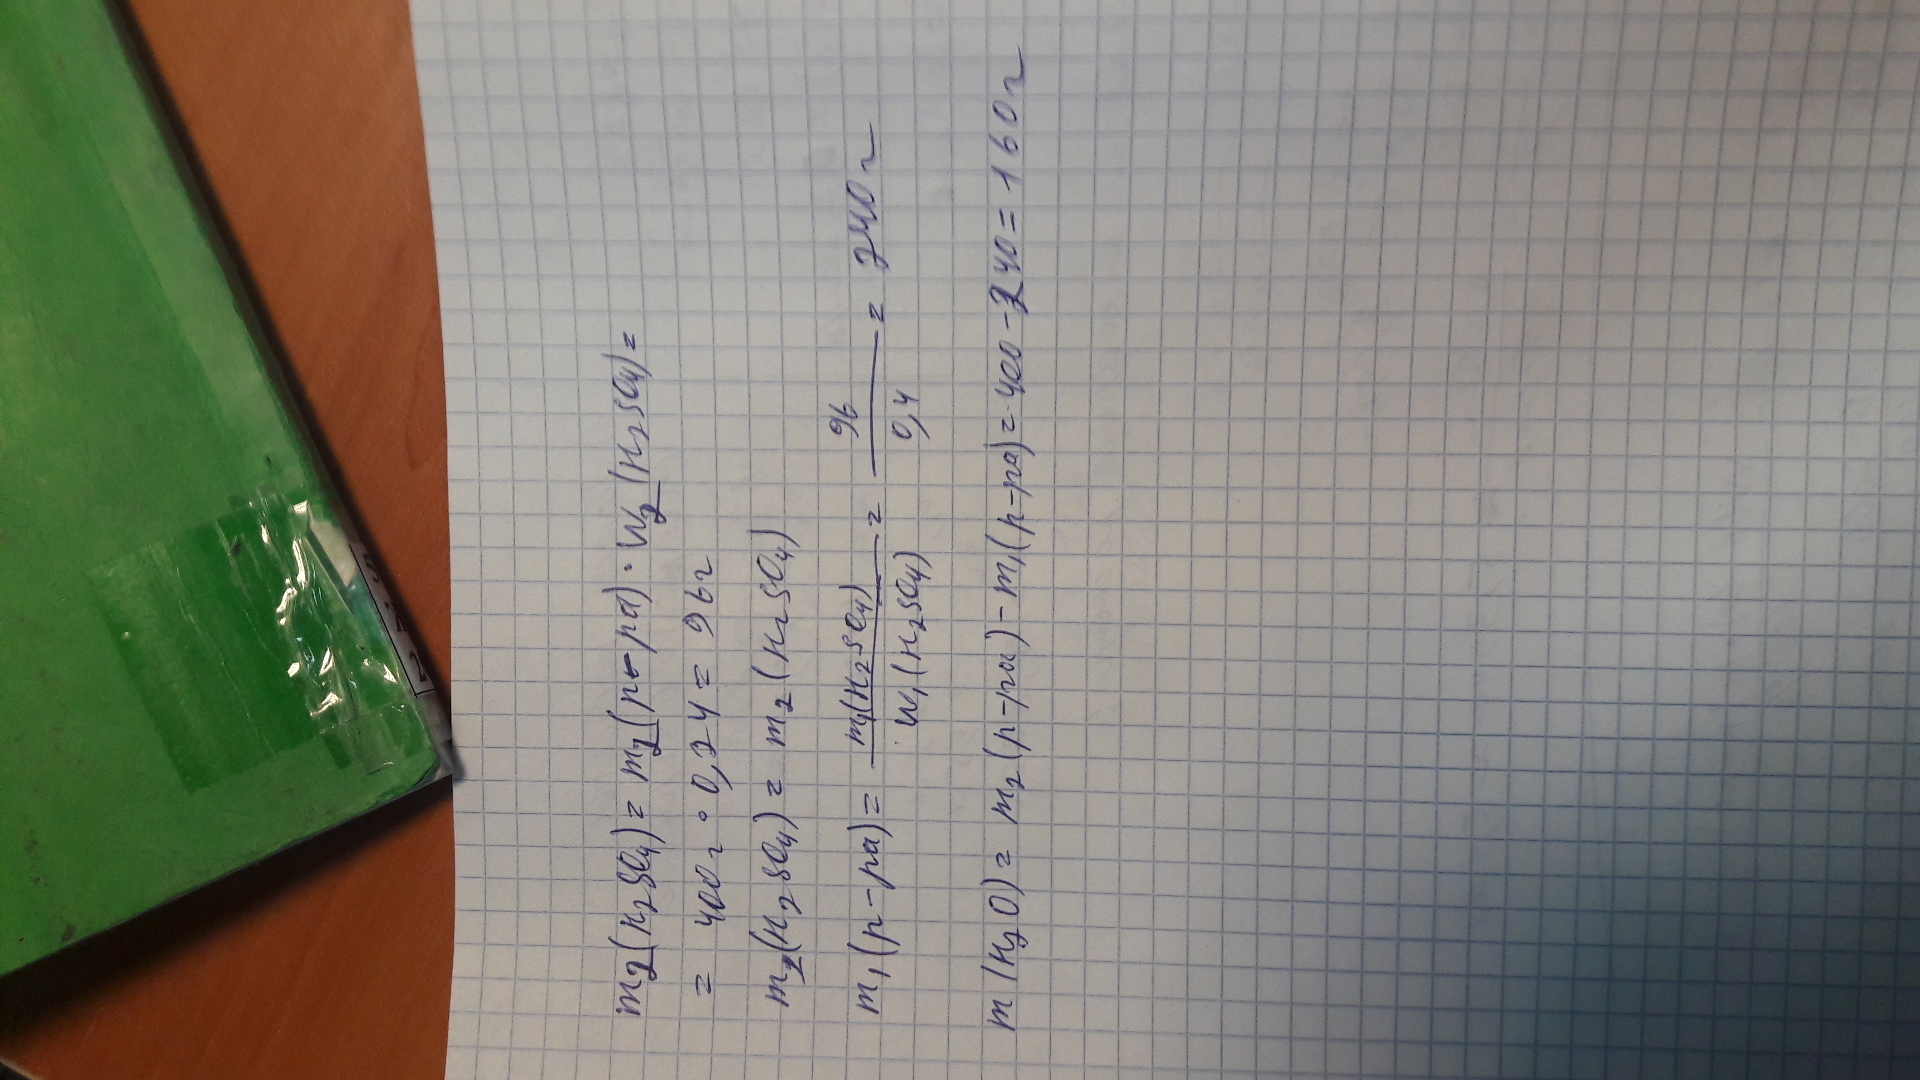 m₂(H₂SO₄) = m₂(р-ра) · W₂(H₂SO₄) =
= 400 г · 0,24 = 96 г
m₂(H₂SO₄) = m₂(H₂SO₄)
m₁(р-ра) = m₁(H₂SO₄) / W₁(H₂SO₄) = 96 / 0,4 = 240 г
m(H₂O) = m₂(р-ра) - m₁(р-ра) = 400 - 240 = 160 г